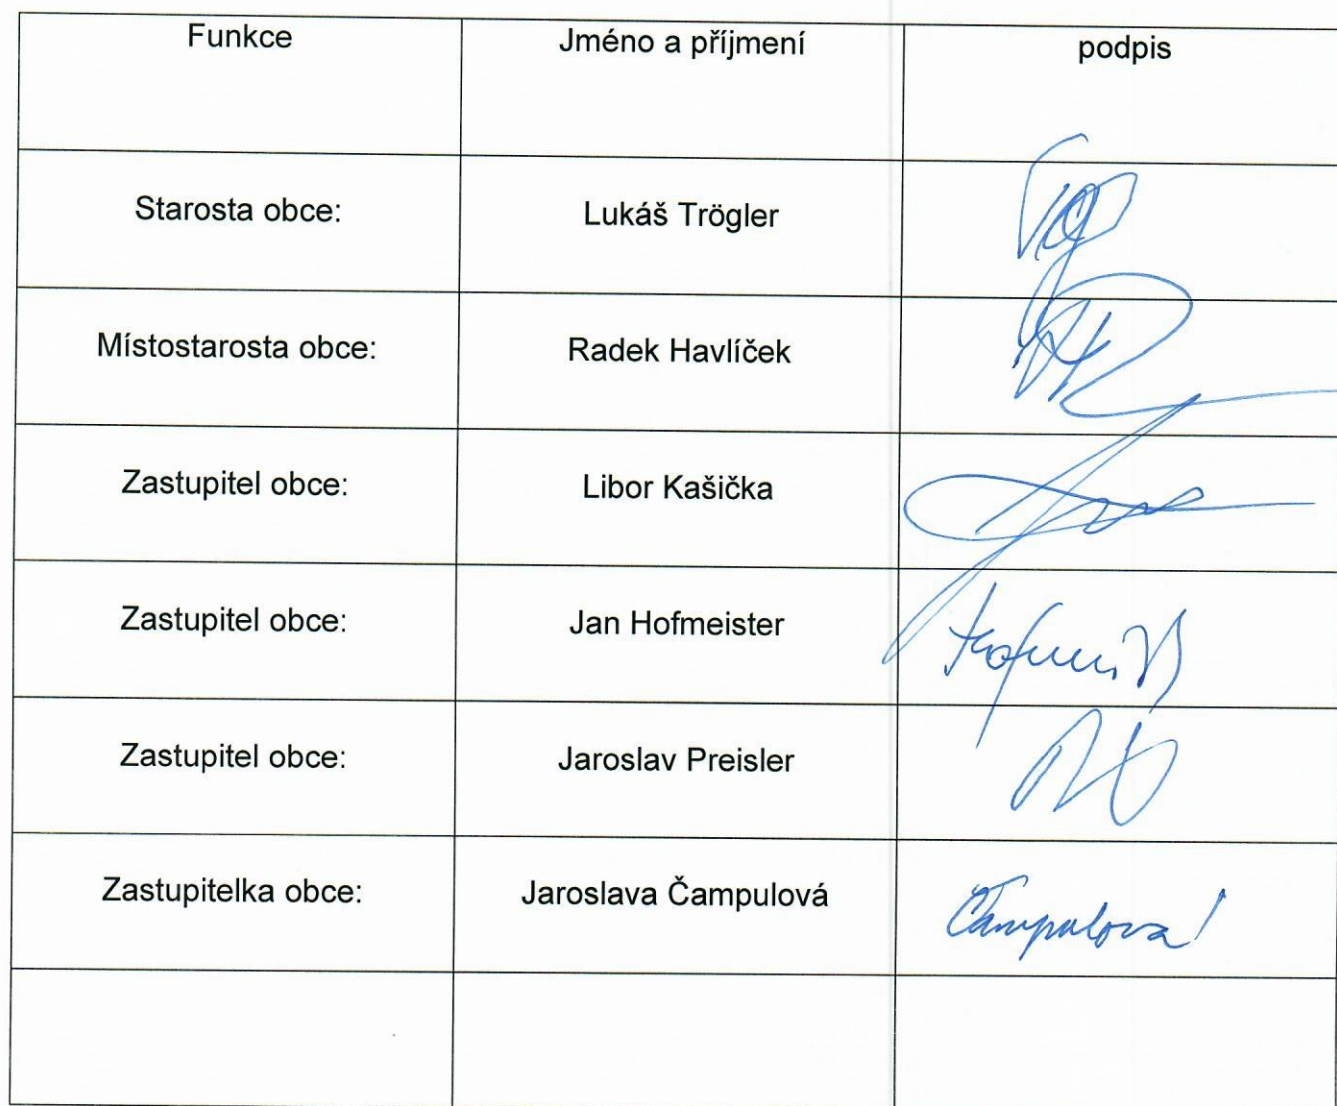 Funkce Jméno a příjmení podpis
Starosta obce: Lukáš Trögler
Místostarosta obce: Radek Havlíček
Zastupitel obce: Libor Kašička
Zastupitel obce: Jan Hofmeister
Zastupitel obce: Jaroslav Preisler
Zastupitelka obce: Jaroslava Čampulová Čampulová